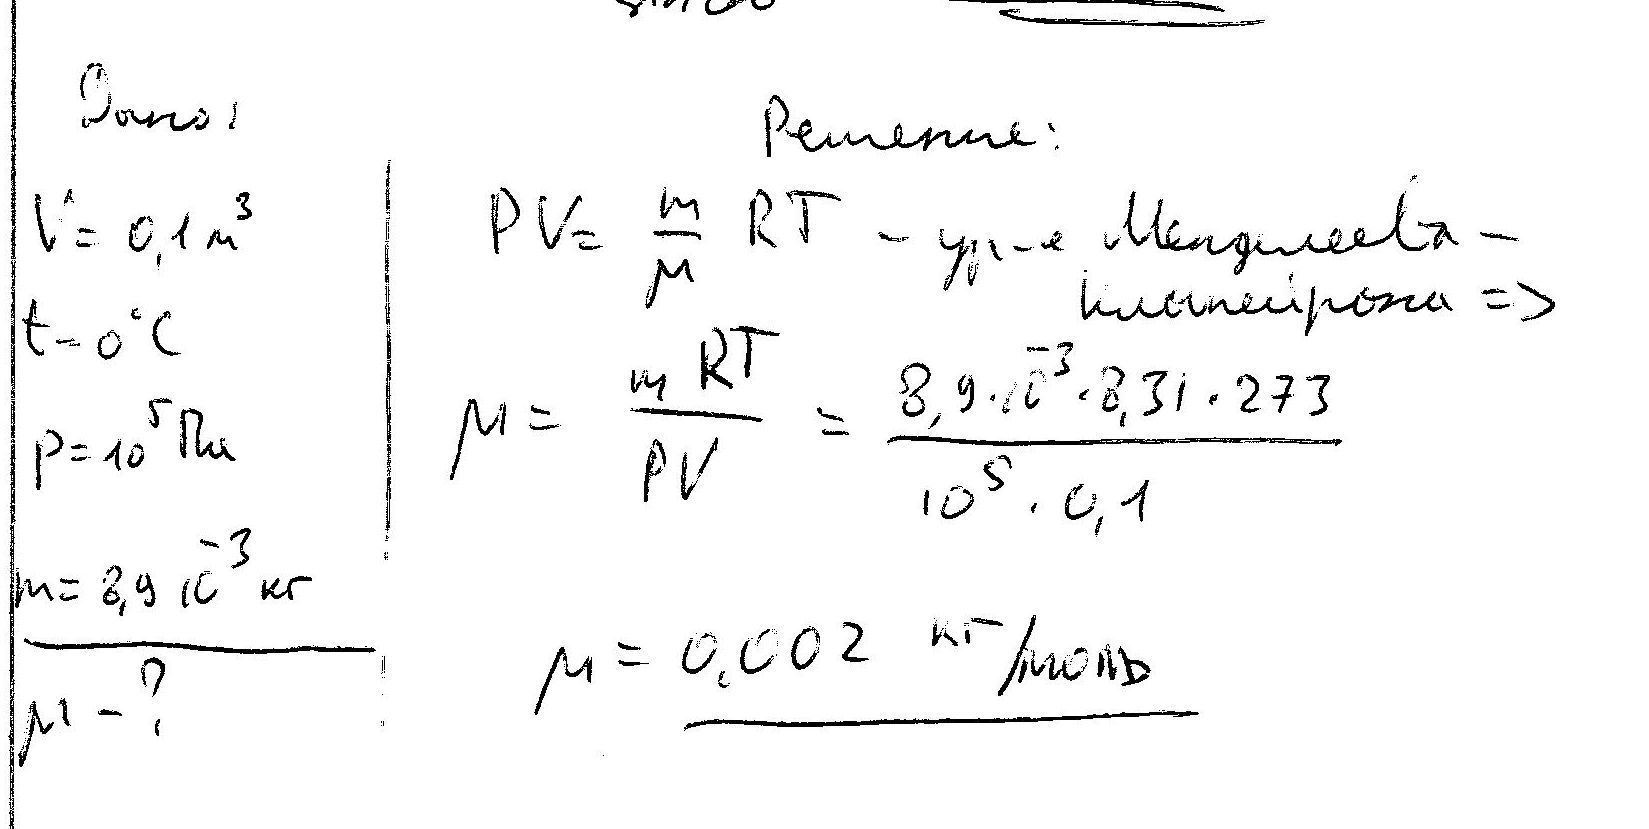 Дано:
V = 0,1 м³
t = 0°C
p = 10⁵ Па
m = 8,9 10⁻³ кг
μ - ?
Решение:
PV = m/μ RT - ур-е Менделеева -
Клапейрона =>
μ = mRT/PV = 8,9·10⁻³·8,31·273/10⁵·0,1
μ = 0,002 кг/моль